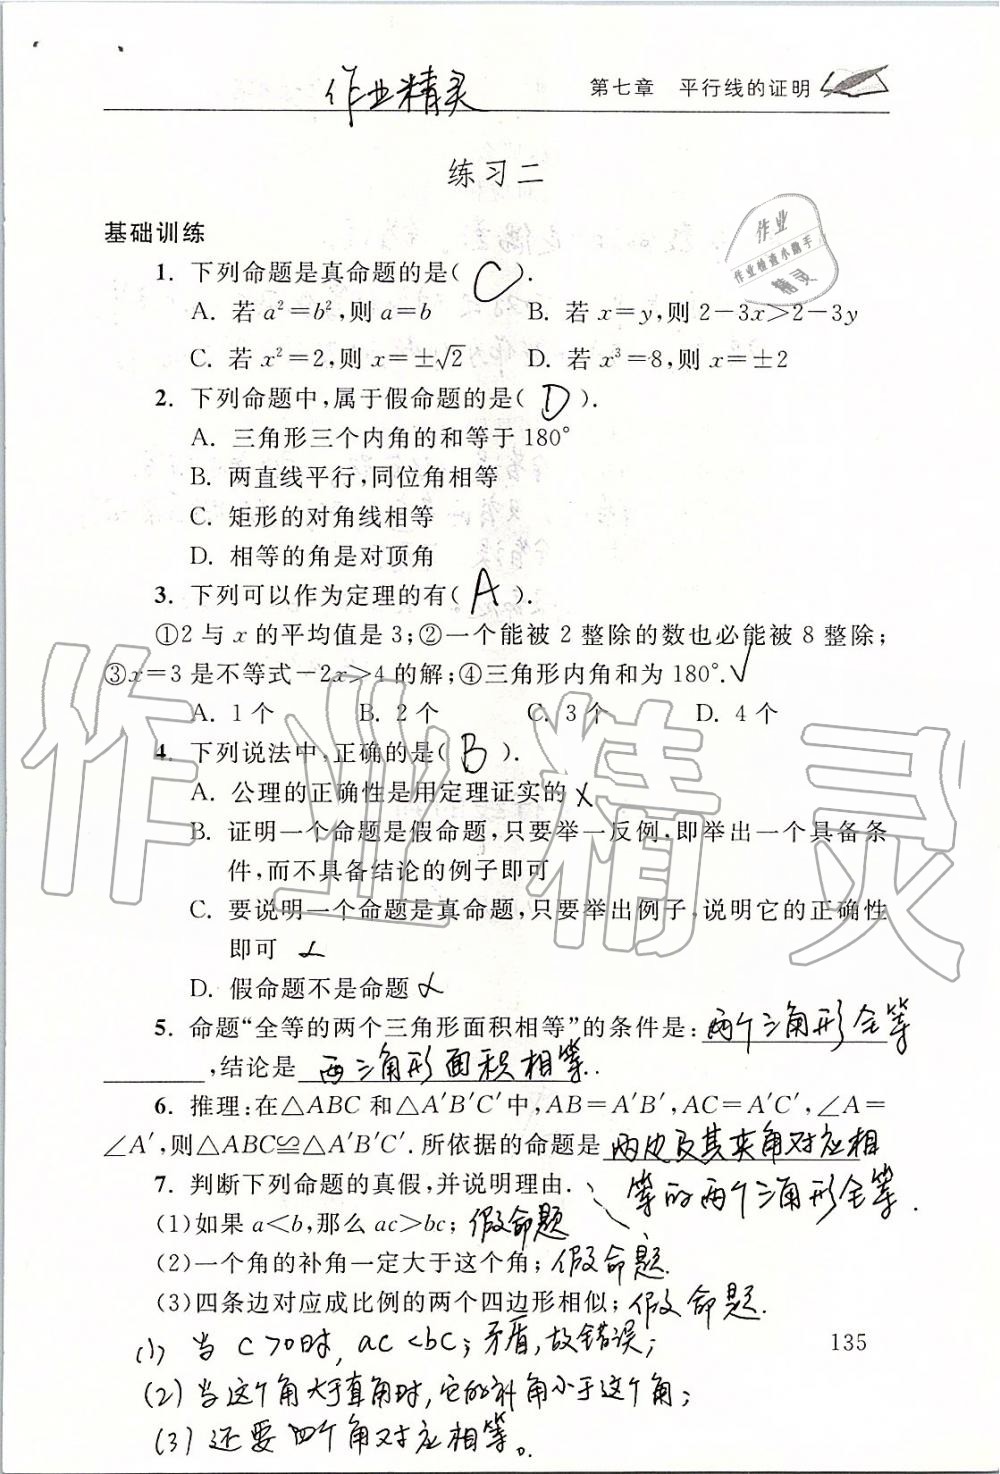 作业精灵
第七章 平行线的证明
练习二
作业
作业检查小助手
精灵
基础训练
1. 下列命题是真命题的是( C ).
A. 若 a²=b²,则 a=b B. 若 x=y,则 2-3x>2-3y
C. 若 x²=2,则 x=±√2 D. 若 x³=8,则 x=±2
2. 下列命题中,属于假命题的是( D ).
A. 三角形三个内角的和等于 180°
B. 两直线平行,同位角相等
C. 矩形的对角线相等
D. 相等的角是对顶角
3. 下列可以作为定理的有( A ).
①2 与 x 的平均值是 3;②一个能被 2 整除的数也必能被 8 整除;
③x=3 是不等式-2x>4 的解;④三角形内角和为 180°.√
A. 1 个 B. 2 个 C. 3 个 D. 4 个
4. 下列说法中,正确的是( B ).
A. 公理的正确性是用定理证实的 ×
B. 证明一个命题是假命题,只要举一反例,即举出一个具备条
件,而不具备结论的例子即可
C. 要说明一个命题是真命题,只要举出例子,说明它的正确性
即可 ×
D. 假命题不是命题 ×
作业精灵
5. 命题“全等的两个三角形面积相等”的条件是: 两个三角形全等
,结论是 两三角形面积相等.
6. 推理:在△ABC 和△A′B′C′中,AB=A′B′,AC=A′C′,∠A=
∠A′,则△ABC≌△A′B′C′.所依据的命题是 两边及其夹角对应相
等的两个三角形全等.
7. 判断下列命题的真假,并说明理由.
(1)如果 a<b,那么 ac>bc; 假命题
(2)一个角的补角一定大于这个角; 假命题.
(3)四条边对应成比例的两个四边形相似; 假命题.
(1) 当 c>0时, ac<bc; 矛盾,故错误;
135
(2) 当这个角大于直角时,它的补角小于这个角;
(3) 还要四个角对应相等。